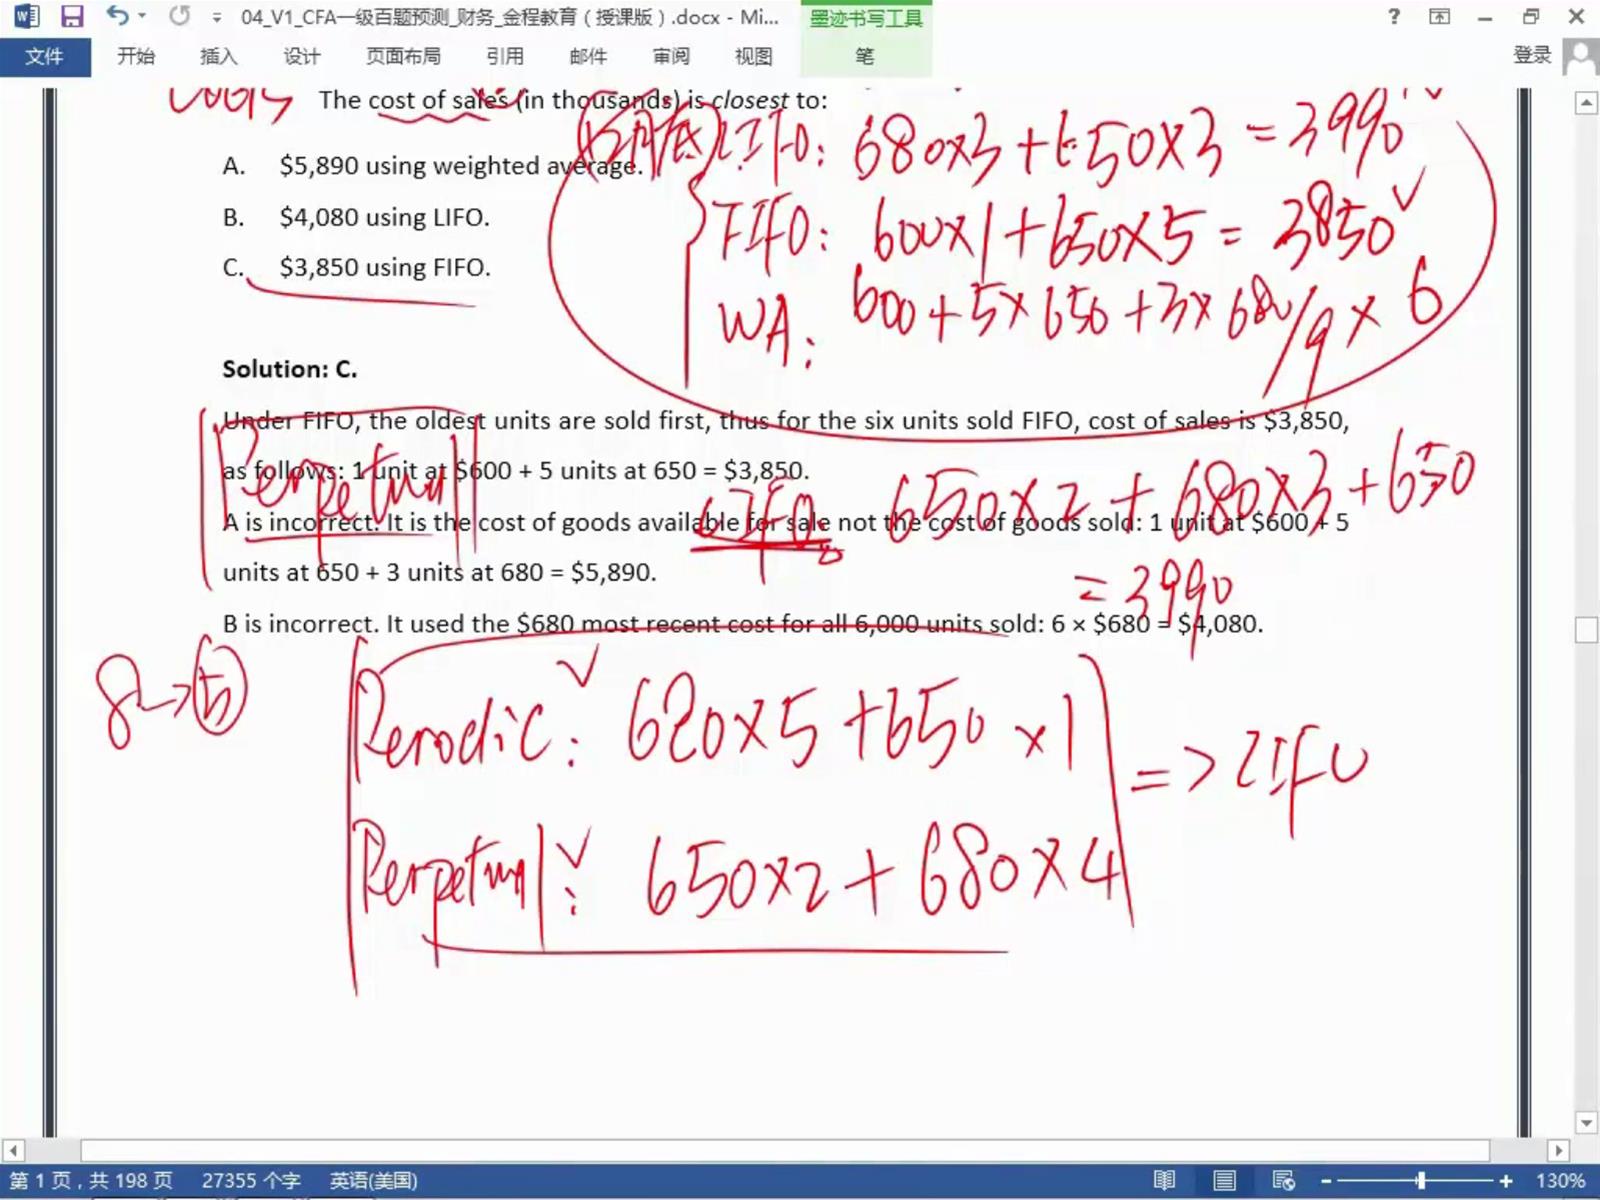 04_V1_CFA一级百题预测_财务_金程教育（授课版）.docx - Mi...
墨迹书写工具
文件 开始 插入 设计 页面布局 引用 邮件 审阅 视图 笔 登录
COGS The cost of sales (in thousands) is closest to:
LIFO: 680×3+650×3 = 3990
A. $5,890 using weighted average.
B. $4,080 using LIFO.
FIFO: 600×1+650×5 = 3850
C. $3,850 using FIFO.
WA: 600+5×650+3×680/9×6
Solution: C.
Under FIFO, the oldest units are sold first, thus for the six units sold FIFO, cost of sales is $3,850,
as follows: 1 unit at $600 + 5 units at 650 = $3,850.
Perpetual
LIFO: 650×2+680×3+650
A is incorrect. It is the cost of goods available for sale not the cost of goods sold: 1 unit at $600 + 5
units at 650 + 3 units at 680 = $5,890.
= 3990
B is incorrect. It used the $680 most recent cost for all 6,000 units sold: 6 × $680 = $4,080.
8→5
Perodic: 680×5+650×1
=> LIFO
Perpetual: 650×2+680×4
第 1 页，共 198 页 27355 个字 英语(美国) 130%